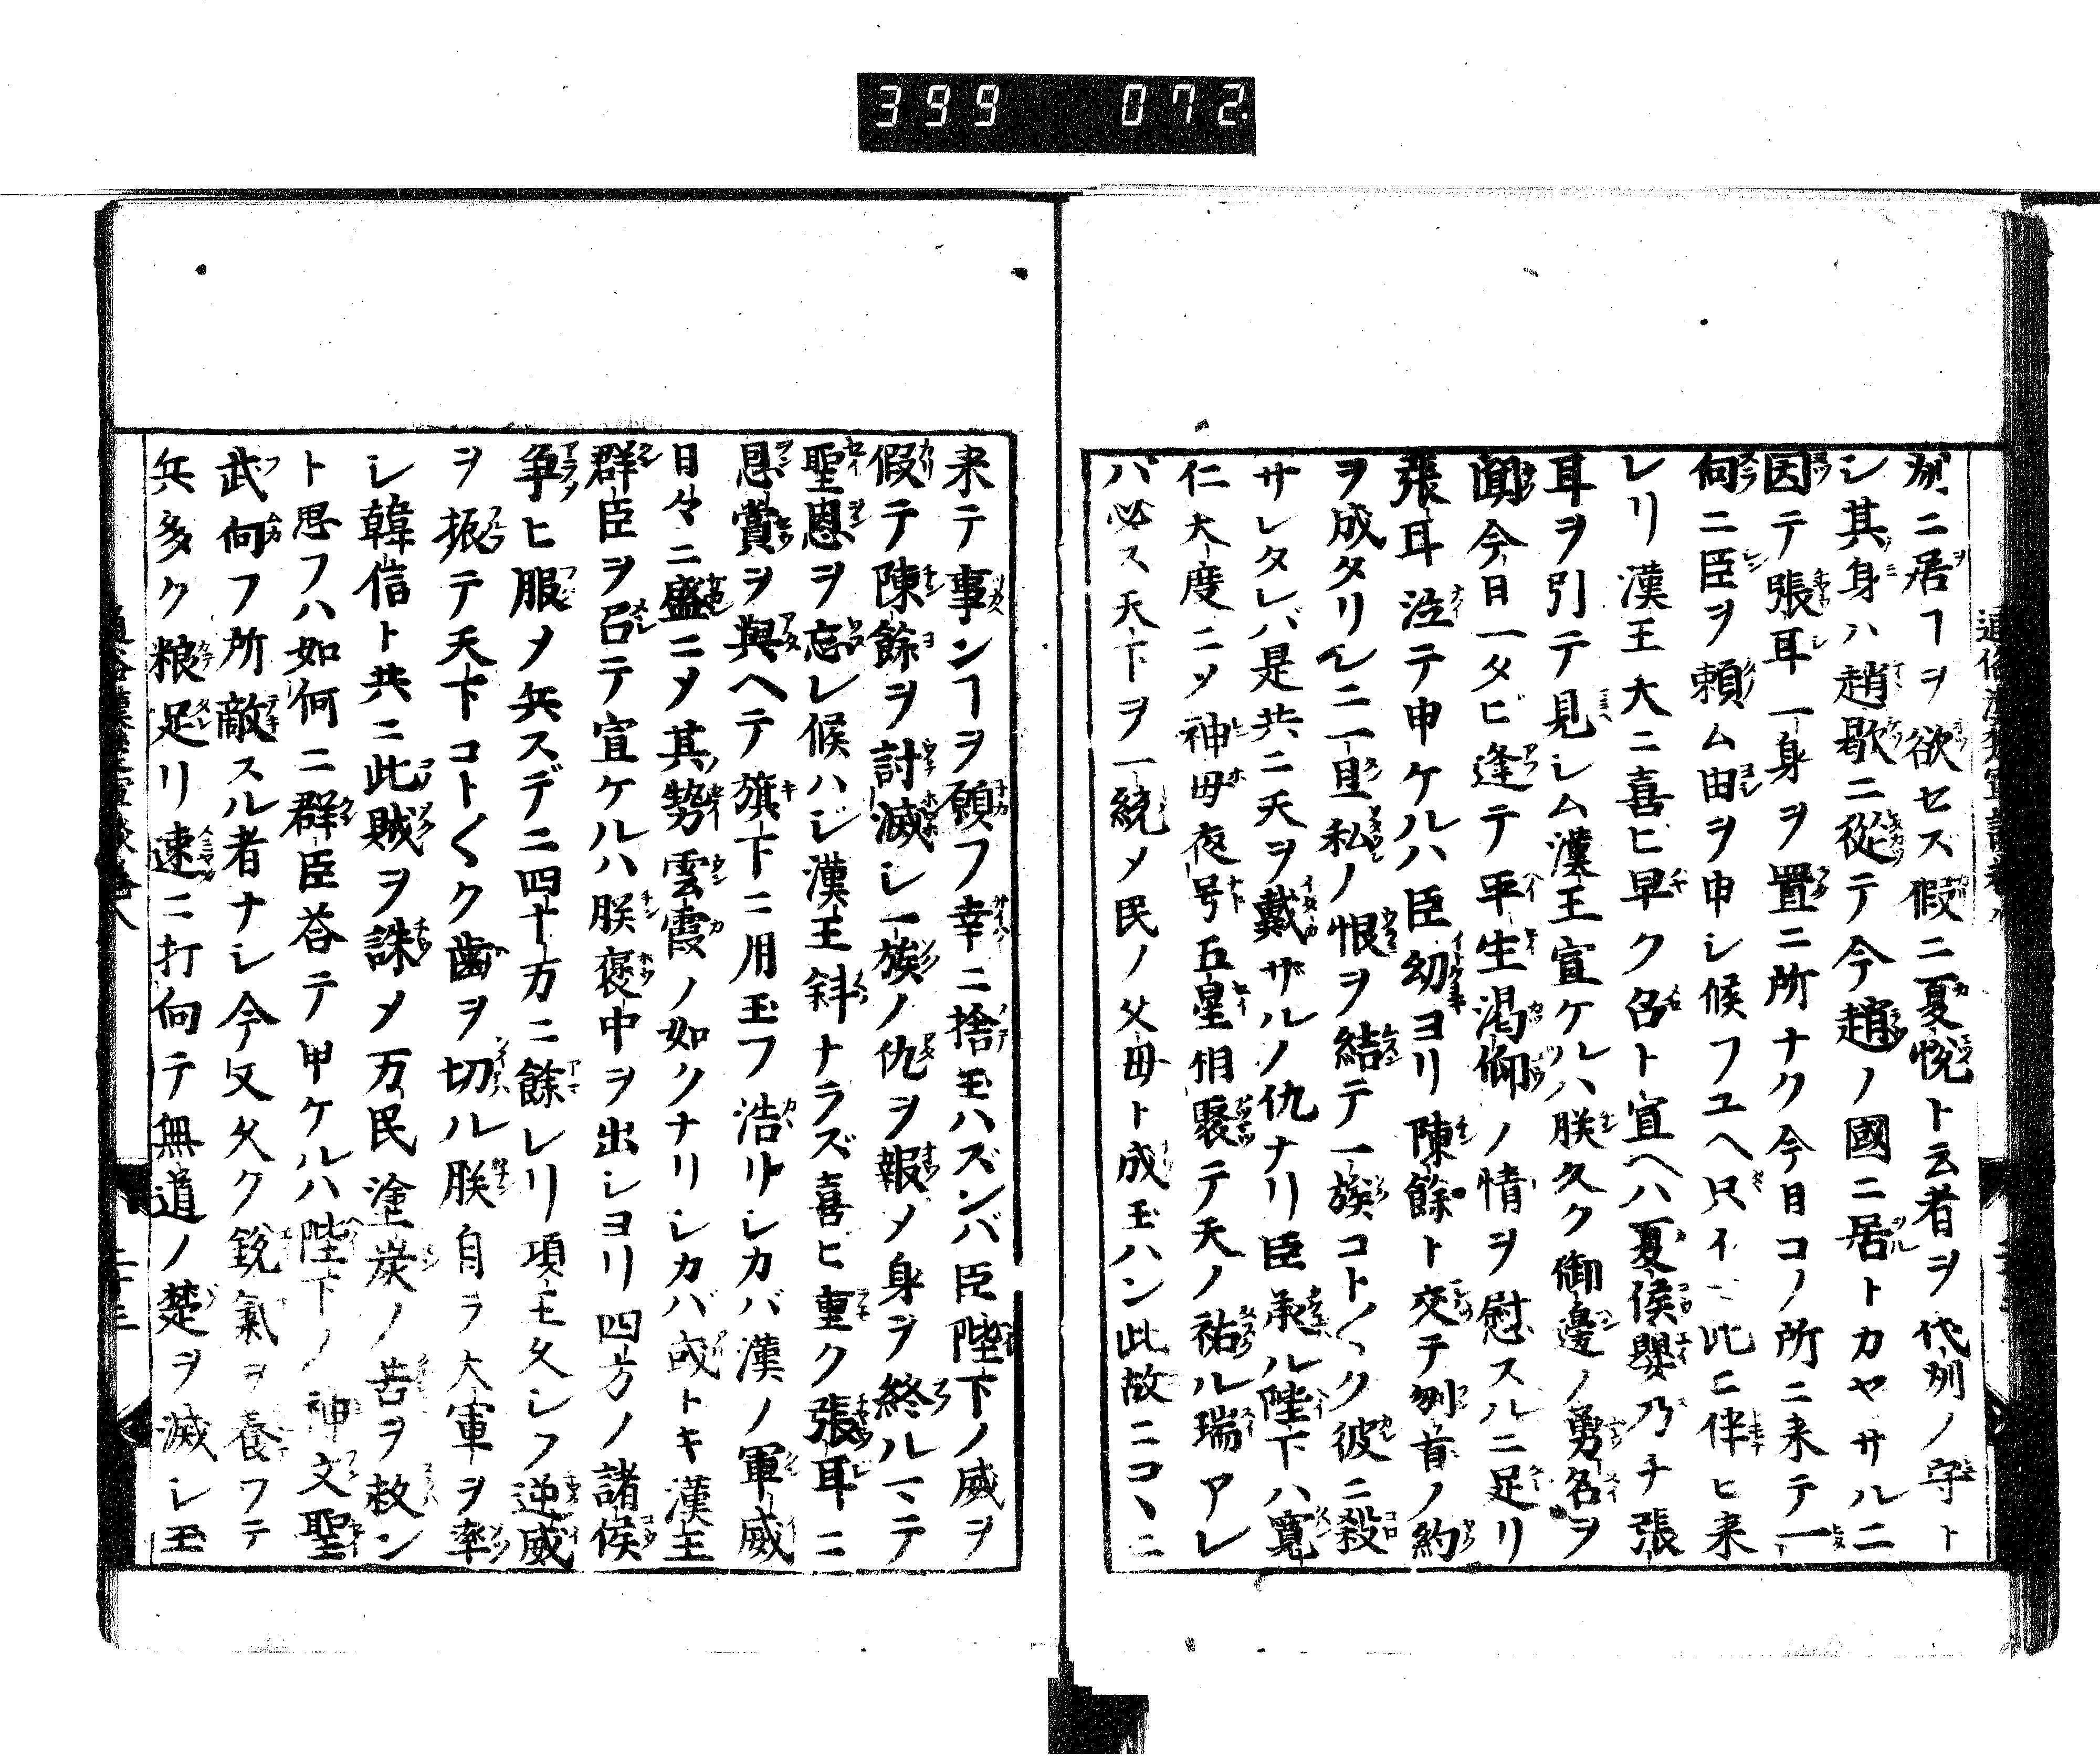 399 072
州ニ居ヿヲ欲セズ假ニ夏悦ト云者ヲ代州ノ守ト
シ其身ハ趙歇ニ從テ今趙ノ國ニ居トカヤサルニ
因テ張耳一身ヲ置ニ所ナク今日コノ所ニ来テ一
向ニ臣ヲ頼ム由ヲ申シ候フユヘ只イ 此ニ伴ヒ来
レリ漢王大ニ喜ビ早ク召ト宣ヘハ夏侯嬰乃チ張
耳ヲ引テ見シム漢王宣ケルハ朕久ク御邊ノ勇名ヲ
聞今日一タビ逢テ平生渇仰ノ情ヲ慰スルニ足リ
張耳泣テ申ケルハ臣幼ヨリ陳餘ト交テ刎首ノ約
ヲ成タリシニ一旦私ノ恨ヲ結テ一族コト〱ク彼ニ殺
サレタレバ是共ニ天ヲ戴ザルノ仇ナリ臣承ル陛下ハ寛
仁大度ニメ神母夜号五星相聚テ天ノ祐ル瑞アレ
バ必ス天下ヲ一統メ民ノ父母ト成玉ハン此故ニコヽニ
来テ事ンヿヲ願フ幸ニ捨玉ハズンバ臣陛下ノ威ヲ
假テ陳餘ヲ討滅シ一族ノ仇ヲ報メ身ヲ終ルマヽテ
聖恩ヲ忘レ候ハジ漢王斜ナラズ喜ヒ重ク張耳ニ
恩賞ヲ與ヘテ旗下ニ用玉フ浩リシカバ漢ノ軍威
日々ニ盛ニメ其勢雲霞ノ如クナリシカバ或トキ漢王
群臣ヲ召テ宣ケルハ朕褒中ヲ出シヨリ四方ノ諸侯
争ヒ服メ兵スデニ四十万ニ餘レリ項王久シフ逆威
ヲ振テ天下コト〱ク歯ヲ切ル朕自ラ大軍ヲ率
シ韓信ト共ニ此賊ヲ誅メ万民塗炭ノ苦ヲ救ン
ト思フハ如何ニ群臣荅テ申ケルハ陛下ノ神文聖
武向フ所敵スル者ナシ今又久ク鋭氣ヲ養フテ
兵多ク粮足リ速ニ打向テ無道ノ楚ヲ滅シ玉